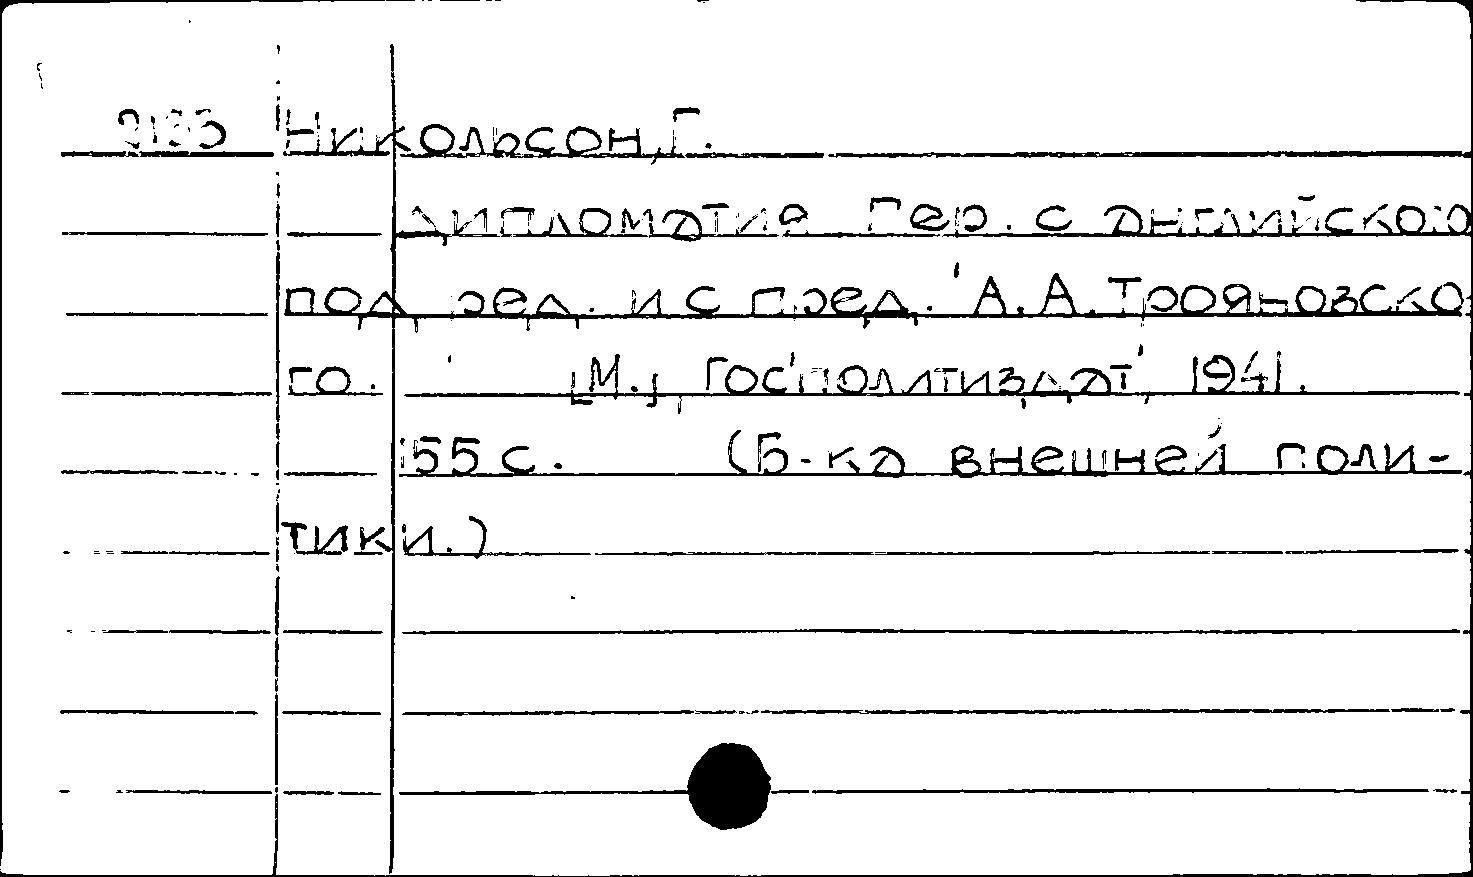 Никольсон, Г.
Дипломатия Пер. с английского
под ред. и с пред. А.А. Трояновско-
го. [М.], Госполитиздат, 1941.
155 с. (Б-ка внешней поли-
тики.)